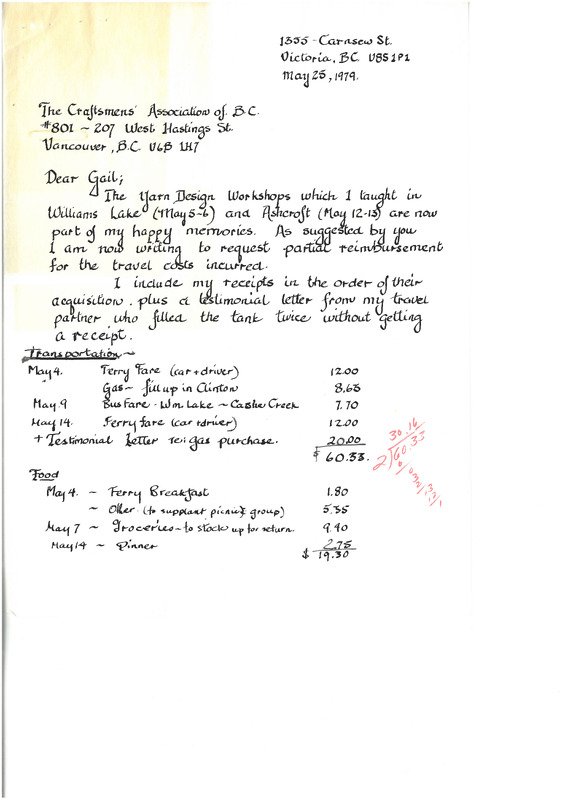 1335 - Carnsew St.
Victoria, B.C. V8S1P1
May 25, 1979.
The Craftsmens' Association of B.C.
#801 ~ 207 West Hastings St.
Vancouver, B.C. V6B 1H7
Dear Gail;
The Yarn Design Workshops which I taught in
Williams Lake (May 5-6) and Ashcroft (May 12-13) are now
part of my happy memories. As suggested by you
I am now writing to request partial reimbursement
for the travel costs incurred.
I include my receipts in the order of their
acquisition, plus a testimonial letter from my travel
partner who filled the tank twice without getting
a receipt.
Transportation ~
May 4. Ferry Fare (car + driver) 12.00
" Gas ~ fill up in Clinton 8.63
May 9 Bus Fare - Wm. Lake ~ Cache Creek 7.70
May 14. Ferry fare (car + driver) 12.00
+ Testimonial Letter re: gas purchase. 20.00
$ 60.33.
30.16
2)60.33
Food
May 4. ~ Ferry Breakfast 1.80
~ Other (to supplant picnic group) 5.35
May 7 ~ Groceries ~ to stock up for return. 9.40
May 14 ~ Dinner 2.75
$ 19.30